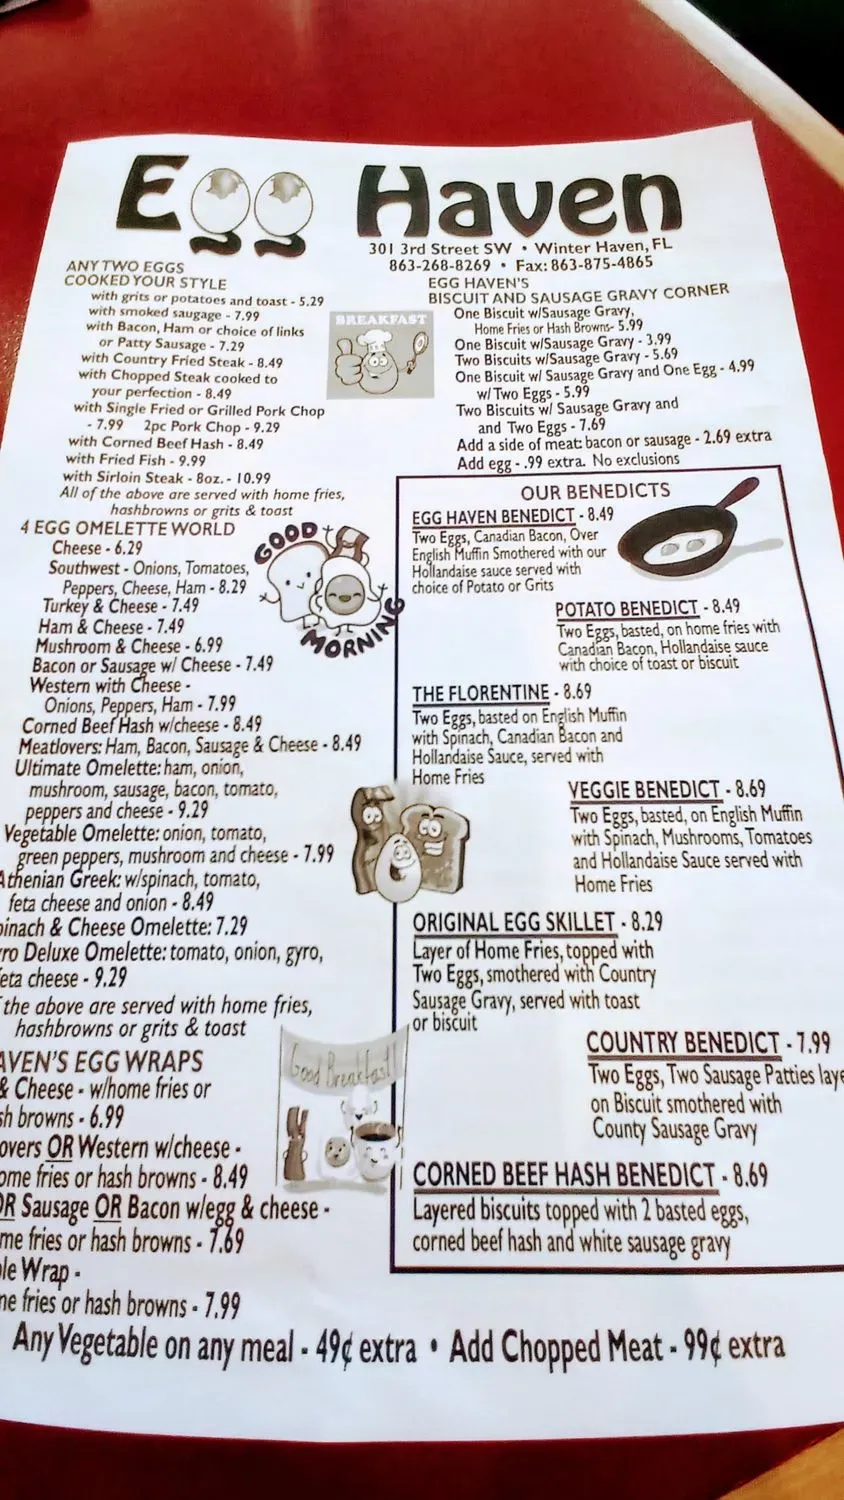 Egg Haven
301 3rd Street SW • Winter Haven, FL
863-268-8269 • Fax: 863-875-4865
ANY TWO EGGS
COOKED YOUR STYLE
with grits or potatoes and toast - 5.29
with smoked saugage - 7.99
with Bacon, Ham or choice of links
or Patty Sausage - 7.29
with Country Fried Steak - 8.49
with Chopped Steak cooked to
your perfection - 8.49
with Single Fried or Grilled Pork Chop
- 7.99 2pc Pork Chop - 9.29
with Corned Beef Hash - 8.49
with Fried Fish - 9.99
with Sirloin Steak - 8oz. - 10.99
All of the above are served with home fries,
hashbrowns or grits & toast
BREAKFAST
4 EGG OMELETTE WORLD
Cheese - 6.29
Southwest - Onions, Tomatoes,
Peppers, Cheese, Ham - 8.29
Turkey & Cheese - 7.49
Ham & Cheese - 7.49
Mushroom & Cheese - 6.99
Bacon or Sausage w/ Cheese - 7.49
Western with Cheese -
Onions, Peppers, Ham - 7.99
Corned Beef Hash w/cheese - 8.49
Meatlovers: Ham, Bacon, Sausage & Cheese - 8.49
Ultimate Omelette: ham, onion,
mushroom, sausage, bacon, tomato,
peppers and cheese - 9.29
Vegetable Omelette: onion, tomato,
green peppers, mushroom and cheese - 7.99
Athenian Greek: w/spinach, tomato,
feta cheese and onion - 8.49
pinach & Cheese Omelette: 7.29
ro Deluxe Omelette: tomato, onion, gyro,
feta cheese - 9.29
the above are served with home fries,
hashbrowns or grits & toast
GOOD
MORNING
AVEN'S EGG WRAPS
& Cheese - w/home fries or
sh browns - 6.99
overs OR Western w/cheese -
ome fries or hash browns - 8.49
OR Sausage OR Bacon w/egg & cheese -
me fries or hash browns - 7.69
le Wrap -
ne fries or hash browns - 7.99
Good Breakfast!
EGG HAVEN'S
BISCUIT AND SAUSAGE GRAVY CORNER
One Biscuit w/Sausage Gravy,
Home Fries or Hash Browns- 5.99
One Biscuit w/Sausage Gravy - 3.99
Two Biscuits w/Sausage Gravy - 5.69
One Biscuit w/ Sausage Gravy and One Egg - 4.99
w/ Two Eggs - 5.99
Two Biscuits w/ Sausage Gravy and
and Two Eggs - 7.69
Add a side of meat: bacon or sausage - 2.69 extra
Add egg - .99 extra. No exclusions
OUR BENEDICTS
EGG HAVEN BENEDICT - 8.49
Two Eggs, Canadian Bacon, Over
English Muffin Smothered with our
Hollandaise sauce served with
choice of Potato or Grits
POTATO BENEDICT - 8.49
Two Eggs, basted, on home fries with
Canadian Bacon, Hollandaise sauce
with choice of toast or biscuit
THE FLORENTINE - 8.69
Two Eggs, basted on English Muffin
with Spinach, Canadian Bacon and
Hollandaise Sauce, served with
Home Fries
VEGGIE BENEDICT - 8.69
Two Eggs, basted, on English Muffin
with Spinach, Mushrooms, Tomatoes
and Hollandaise Sauce served with
Home Fries
ORIGINAL EGG SKILLET - 8.29
Layer of Home Fries, topped with
Two Eggs, smothered with Country
Sausage Gravy, served with toast
or biscuit
COUNTRY BENEDICT - 7.99
Two Eggs, Two Sausage Patties laye
on Biscuit smothered with
County Sausage Gravy
CORNED BEEF HASH BENEDICT - 8.69
Layered biscuits topped with 2 basted eggs,
corned beef hash and white sausage gravy
Any Vegetable on any meal - 49¢ extra • Add Chopped Meat - 99¢ extra